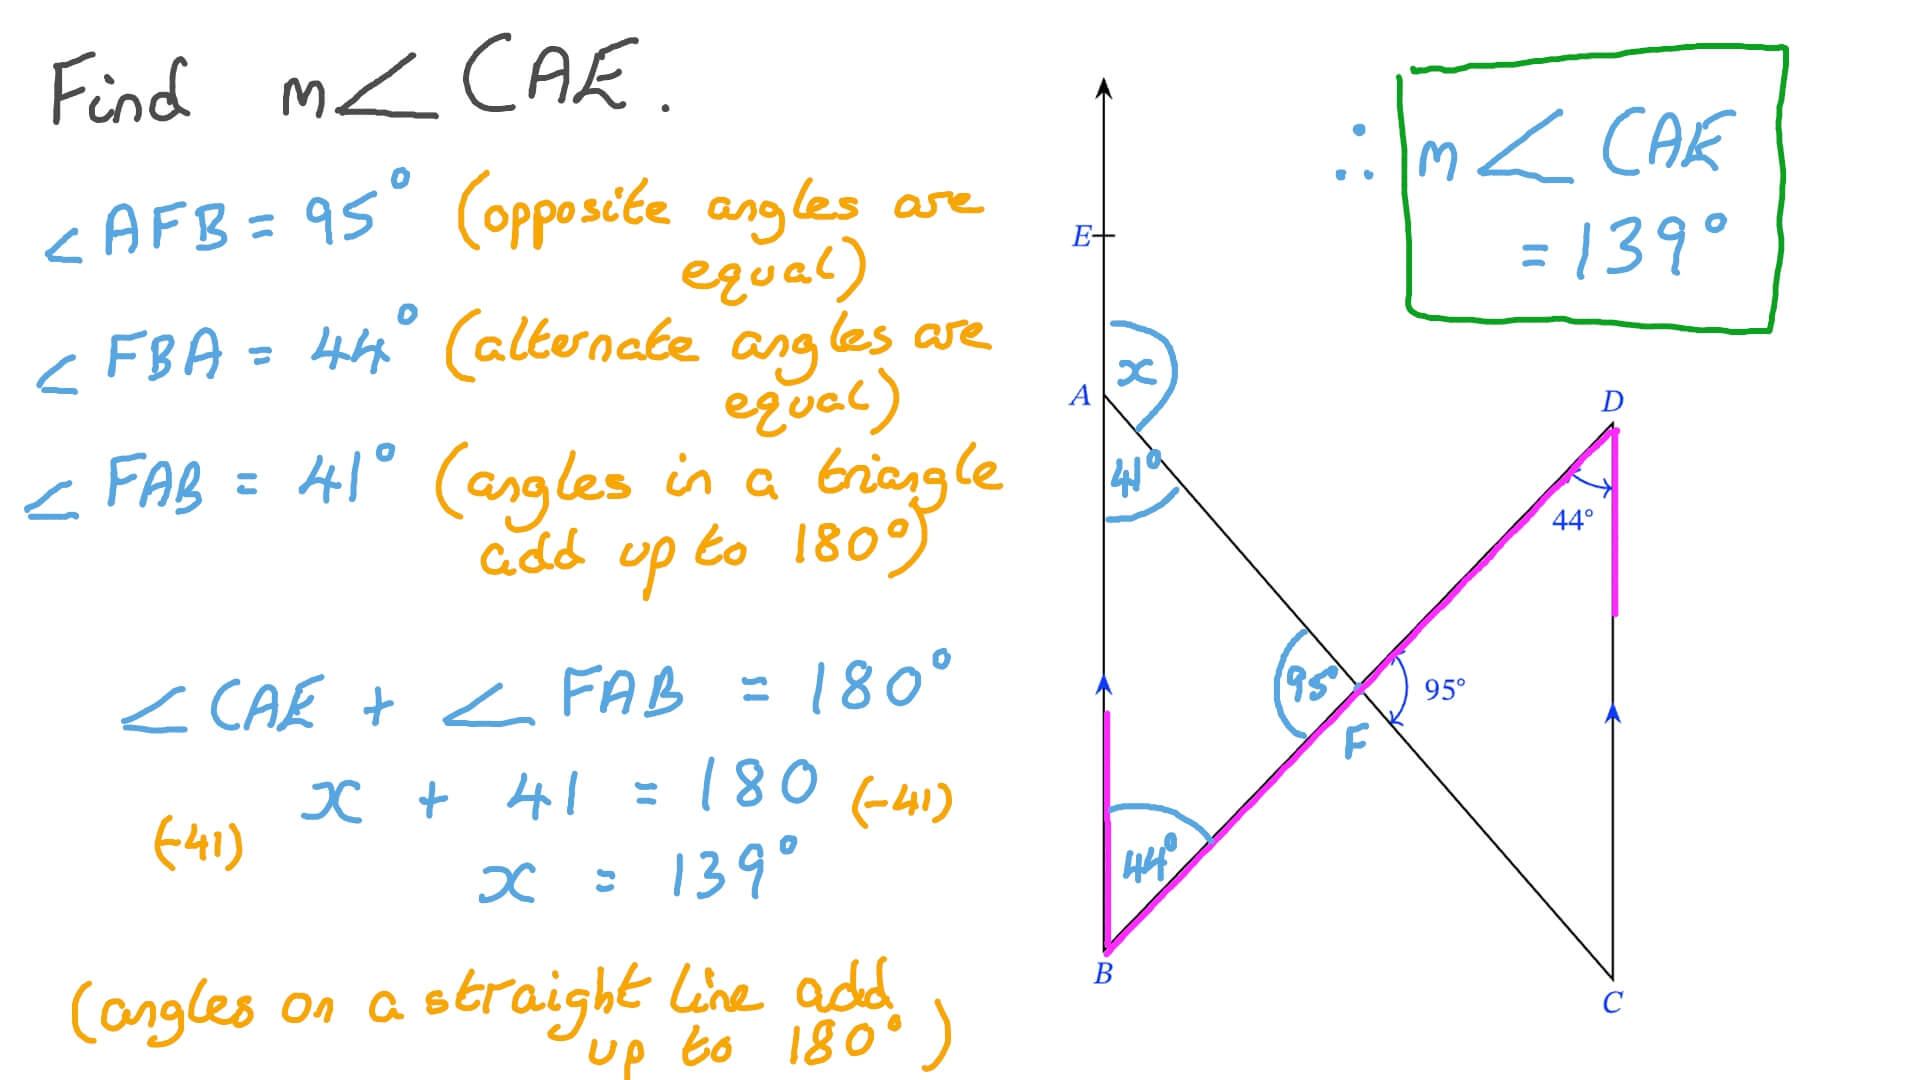 Find m∠CAE.
∠AFB = 95° (opposite angles are
equal)
∠FBA = 44° (alternate angles are
equal)
∠FAB = 41° (angles in a triangle
add up to 180°)
∠CAE + ∠FAB = 180°
x + 41 = 180 (-41)
(-41)
x = 139°
(angles on a straight line add
up to 180°)
∴ m∠CAE
= 139°
E
x
A
41°
D
44°
95°
95°
F
44°
B
C